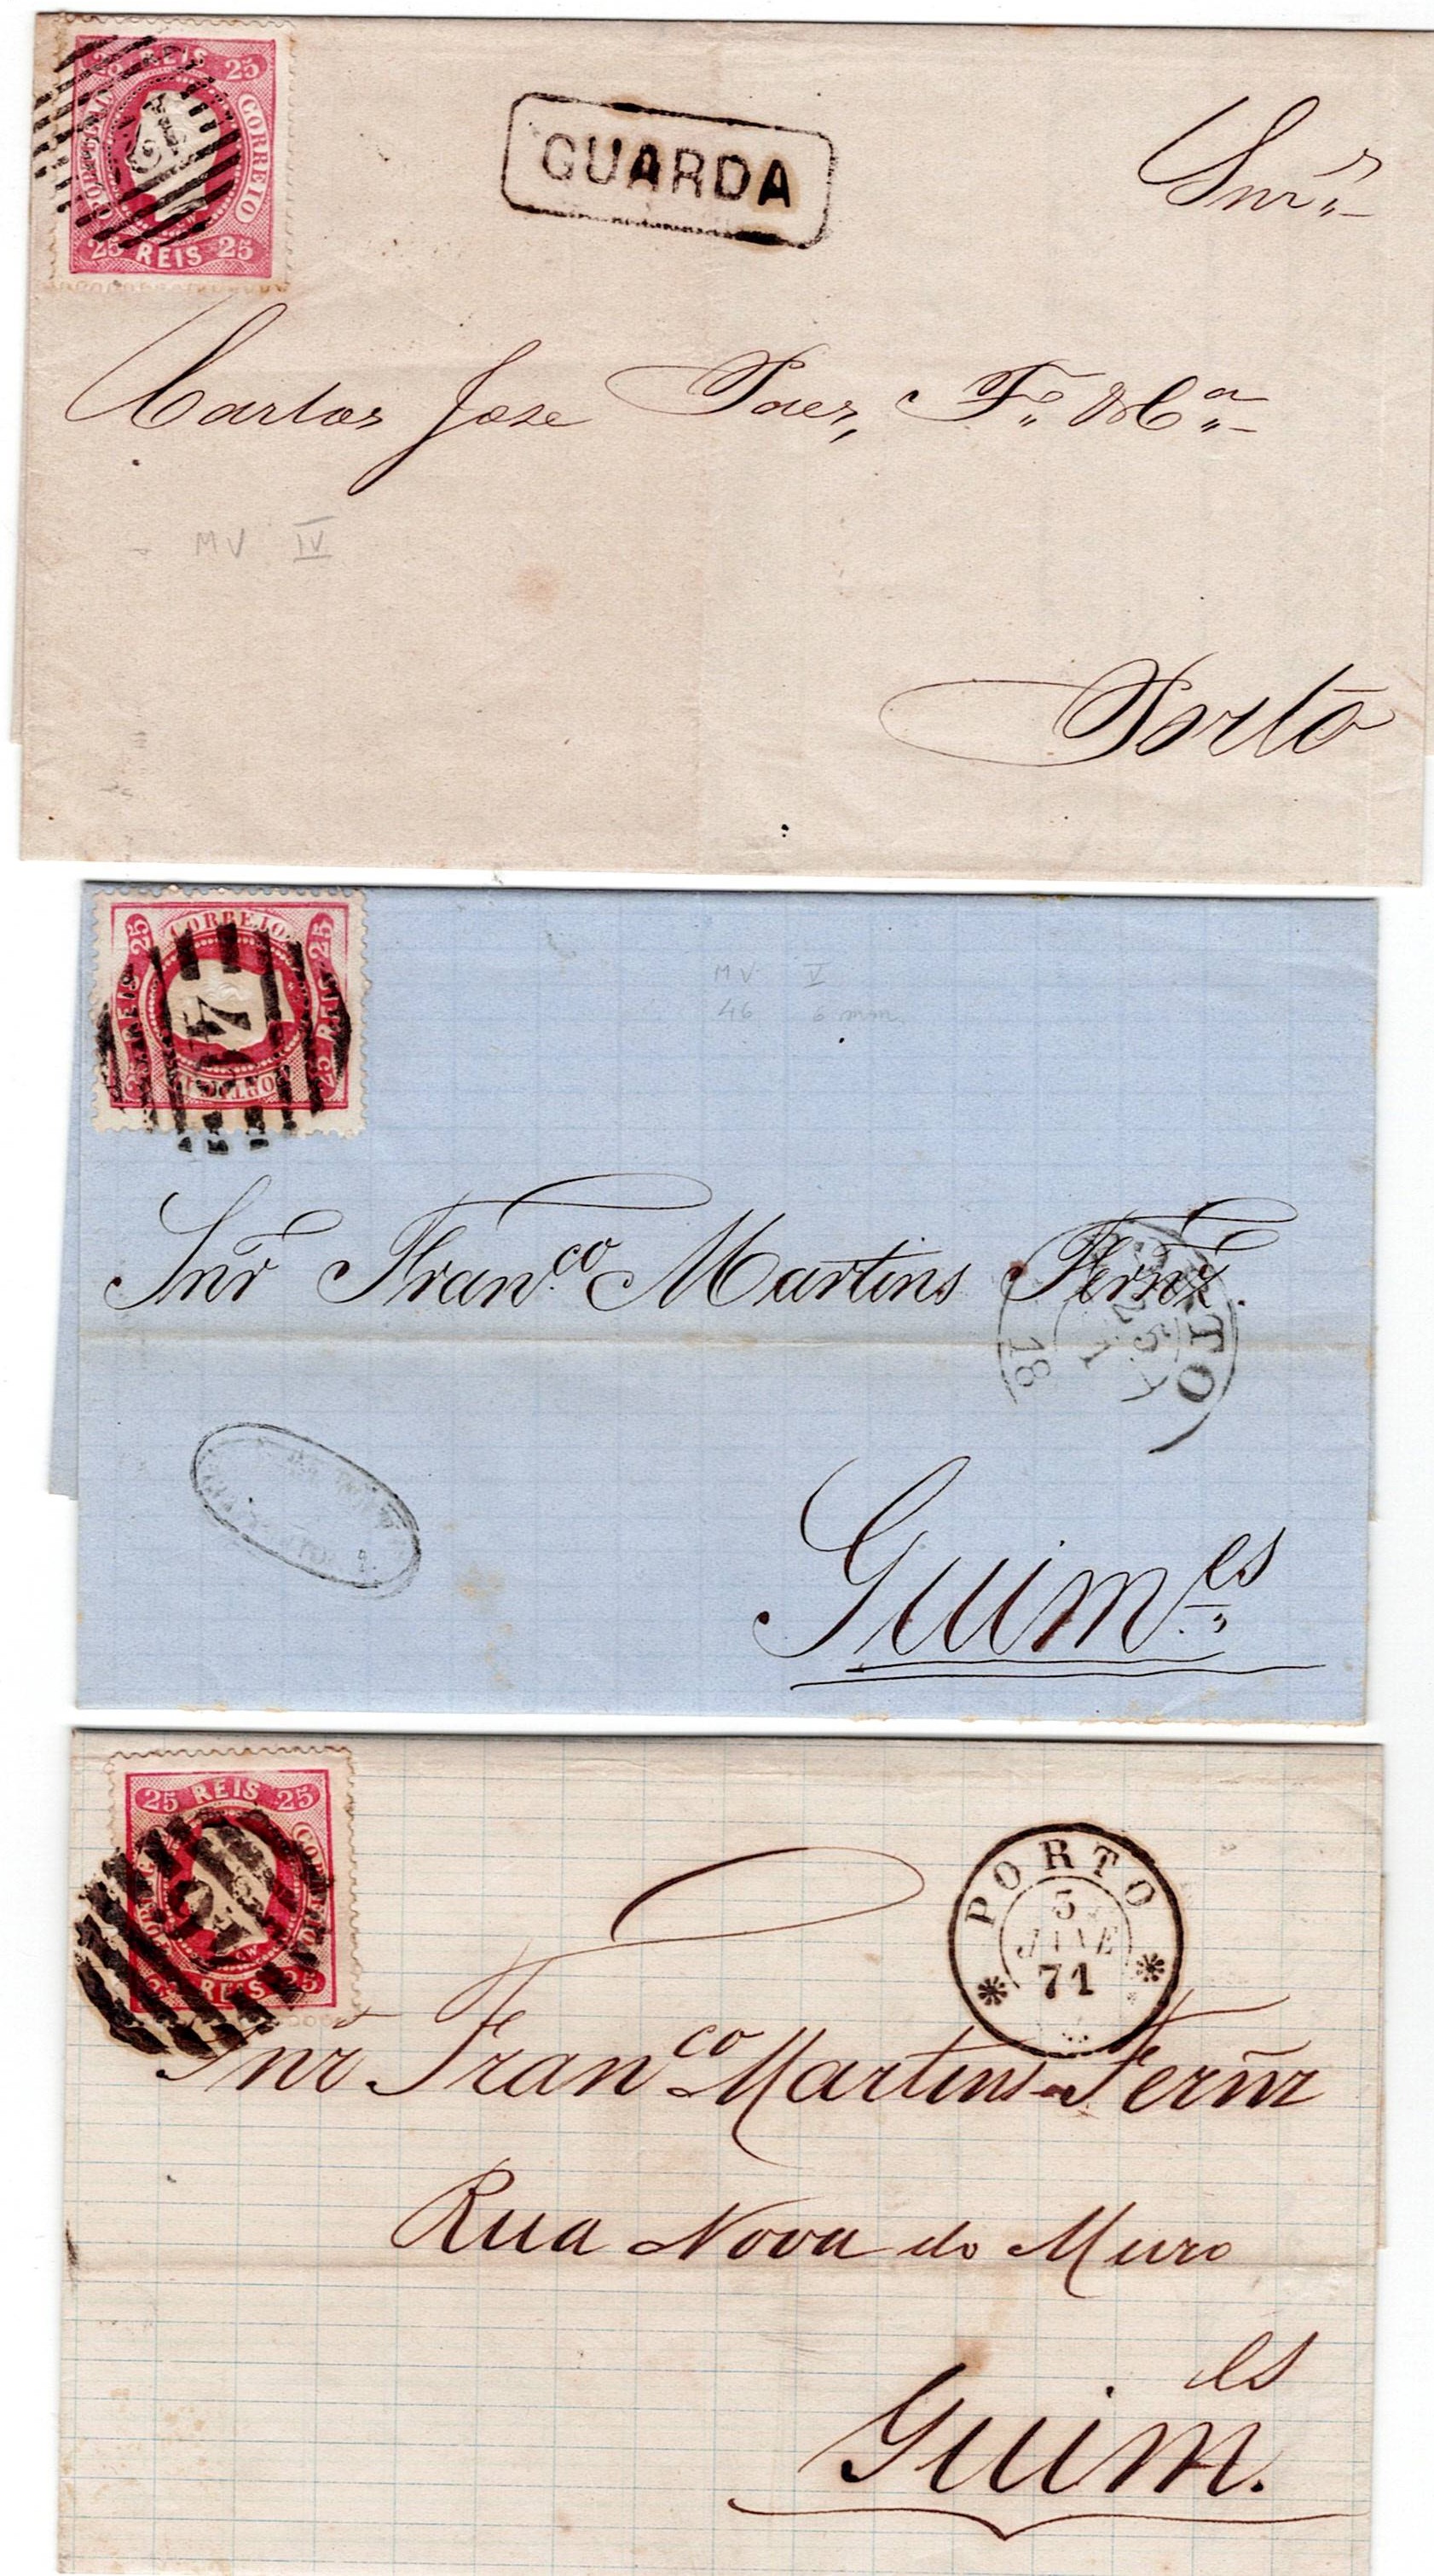 25 REIS 25
CORREIO
25 REIS 25
GUARDA
Snr.es
Carlos Jose Paes, F.o & C.a
MV IV
Porto
CORREIO
25 REIS
25 REIS 25
MV V
46 6 mm
Snr Fran.co Martins Fernz.
PORTO
25
18
Guim.es
25 REIS 25
CORREIO
REIS 25
PORTO
5
JANE
71
Snr Fran.co Martins Fernz
Rua Nova do Muro
Guim.es